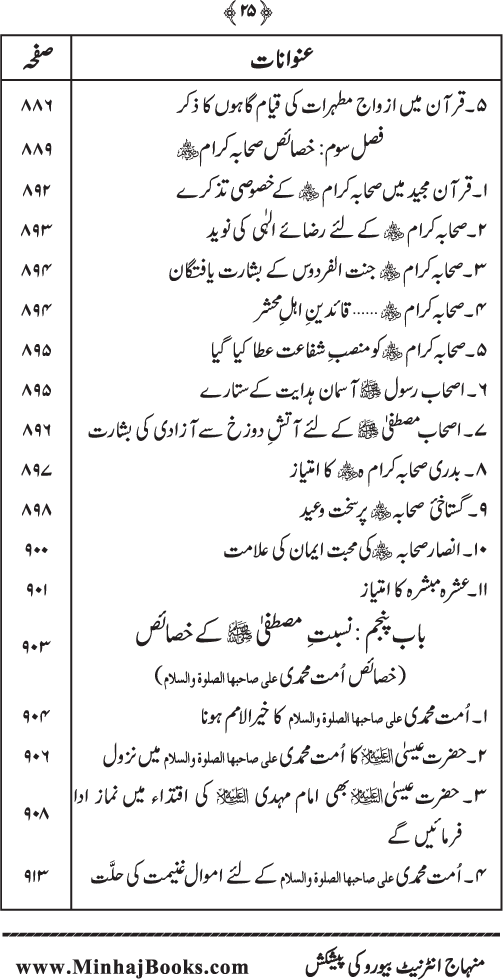 ﴿ ۲۵ ﴾
عنوانات صفحہ
۵۔ قرآن میں ازواج مطہرات کی قیام گاہوں کا ذکر ۸۸۶
فصل سوم: خصائص صحابہ کرام رضی اللہ عنہم ۸۸۹
۱۔ قرآن مجید میں صحابہ کرام رضی اللہ عنہم کے خصوصی تذکرے ۸۹۲
۲۔ صحابہ کرام رضی اللہ عنہم کے لئے رضائے الٰہی کی نوید ۸۹۳
۳۔ صحابہ کرام رضی اللہ عنہم جنت الفردوس کے بشارت یافتگان ۸۹۴
۴۔ صحابہ کرام رضی اللہ عنہم ...... قائدینِ اہلِ محشر ۸۹۴
۵۔ صحابہ کرام رضی اللہ عنہم کو منصبِ شفاعت عطا کیا گیا ۸۹۵
۶۔ اصحاب رسول ﷺ آسمان ہدایت کے ستارے ۸۹۵
۷۔ اصحاب مصطفیٰ ﷺ کے لئے آتشِ دوزخ سے آزادی کی بشارت ۸۹۶
۸۔ بدری صحابہ کرام ہ رضی اللہ عنہم کا امتیاز ۸۹۷
۹۔ گستاخیٔ صحابہ رضی اللہ عنہم پر سخت وعید ۸۹۸
۱۰۔ انصار صحابہ رضی اللہ عنہم کی محبت ایمان کی علامت ۹۰۰
۱۱۔ عشرہ مبشرہ کا امتیاز ۹۰۱
باب پنجم : نسبتِ مصطفیٰ ﷺ کے خصائص ۹۰۳
(خصائص اُمت محمدی علی صاحبها الصلوة والسلام)
۱۔ اُمت محمدی علی صاحبها الصلوة والسلام کا خیر الامم ہونا ۹۰۴
۲۔ حضرت عیسیٰ علیہ السلام کا اُمت محمدی علی صاحبها الصلوة والسلام میں نزول ۹۰۶
۳۔ حضرت عیسیٰ علیہ السلام بھی امام مہدی علیہ السلام کی اقتداء میں نماز ادا ۹۰۸
فرمائیں گے
۴۔ اُمت محمدی علی صاحبها الصلوة والسلام کے لئے اموال غنیمت کی حلَّت ۹۱۳
منہاج انٹرنیٹ بیورو کی پیشکش www.MinhajBooks.com